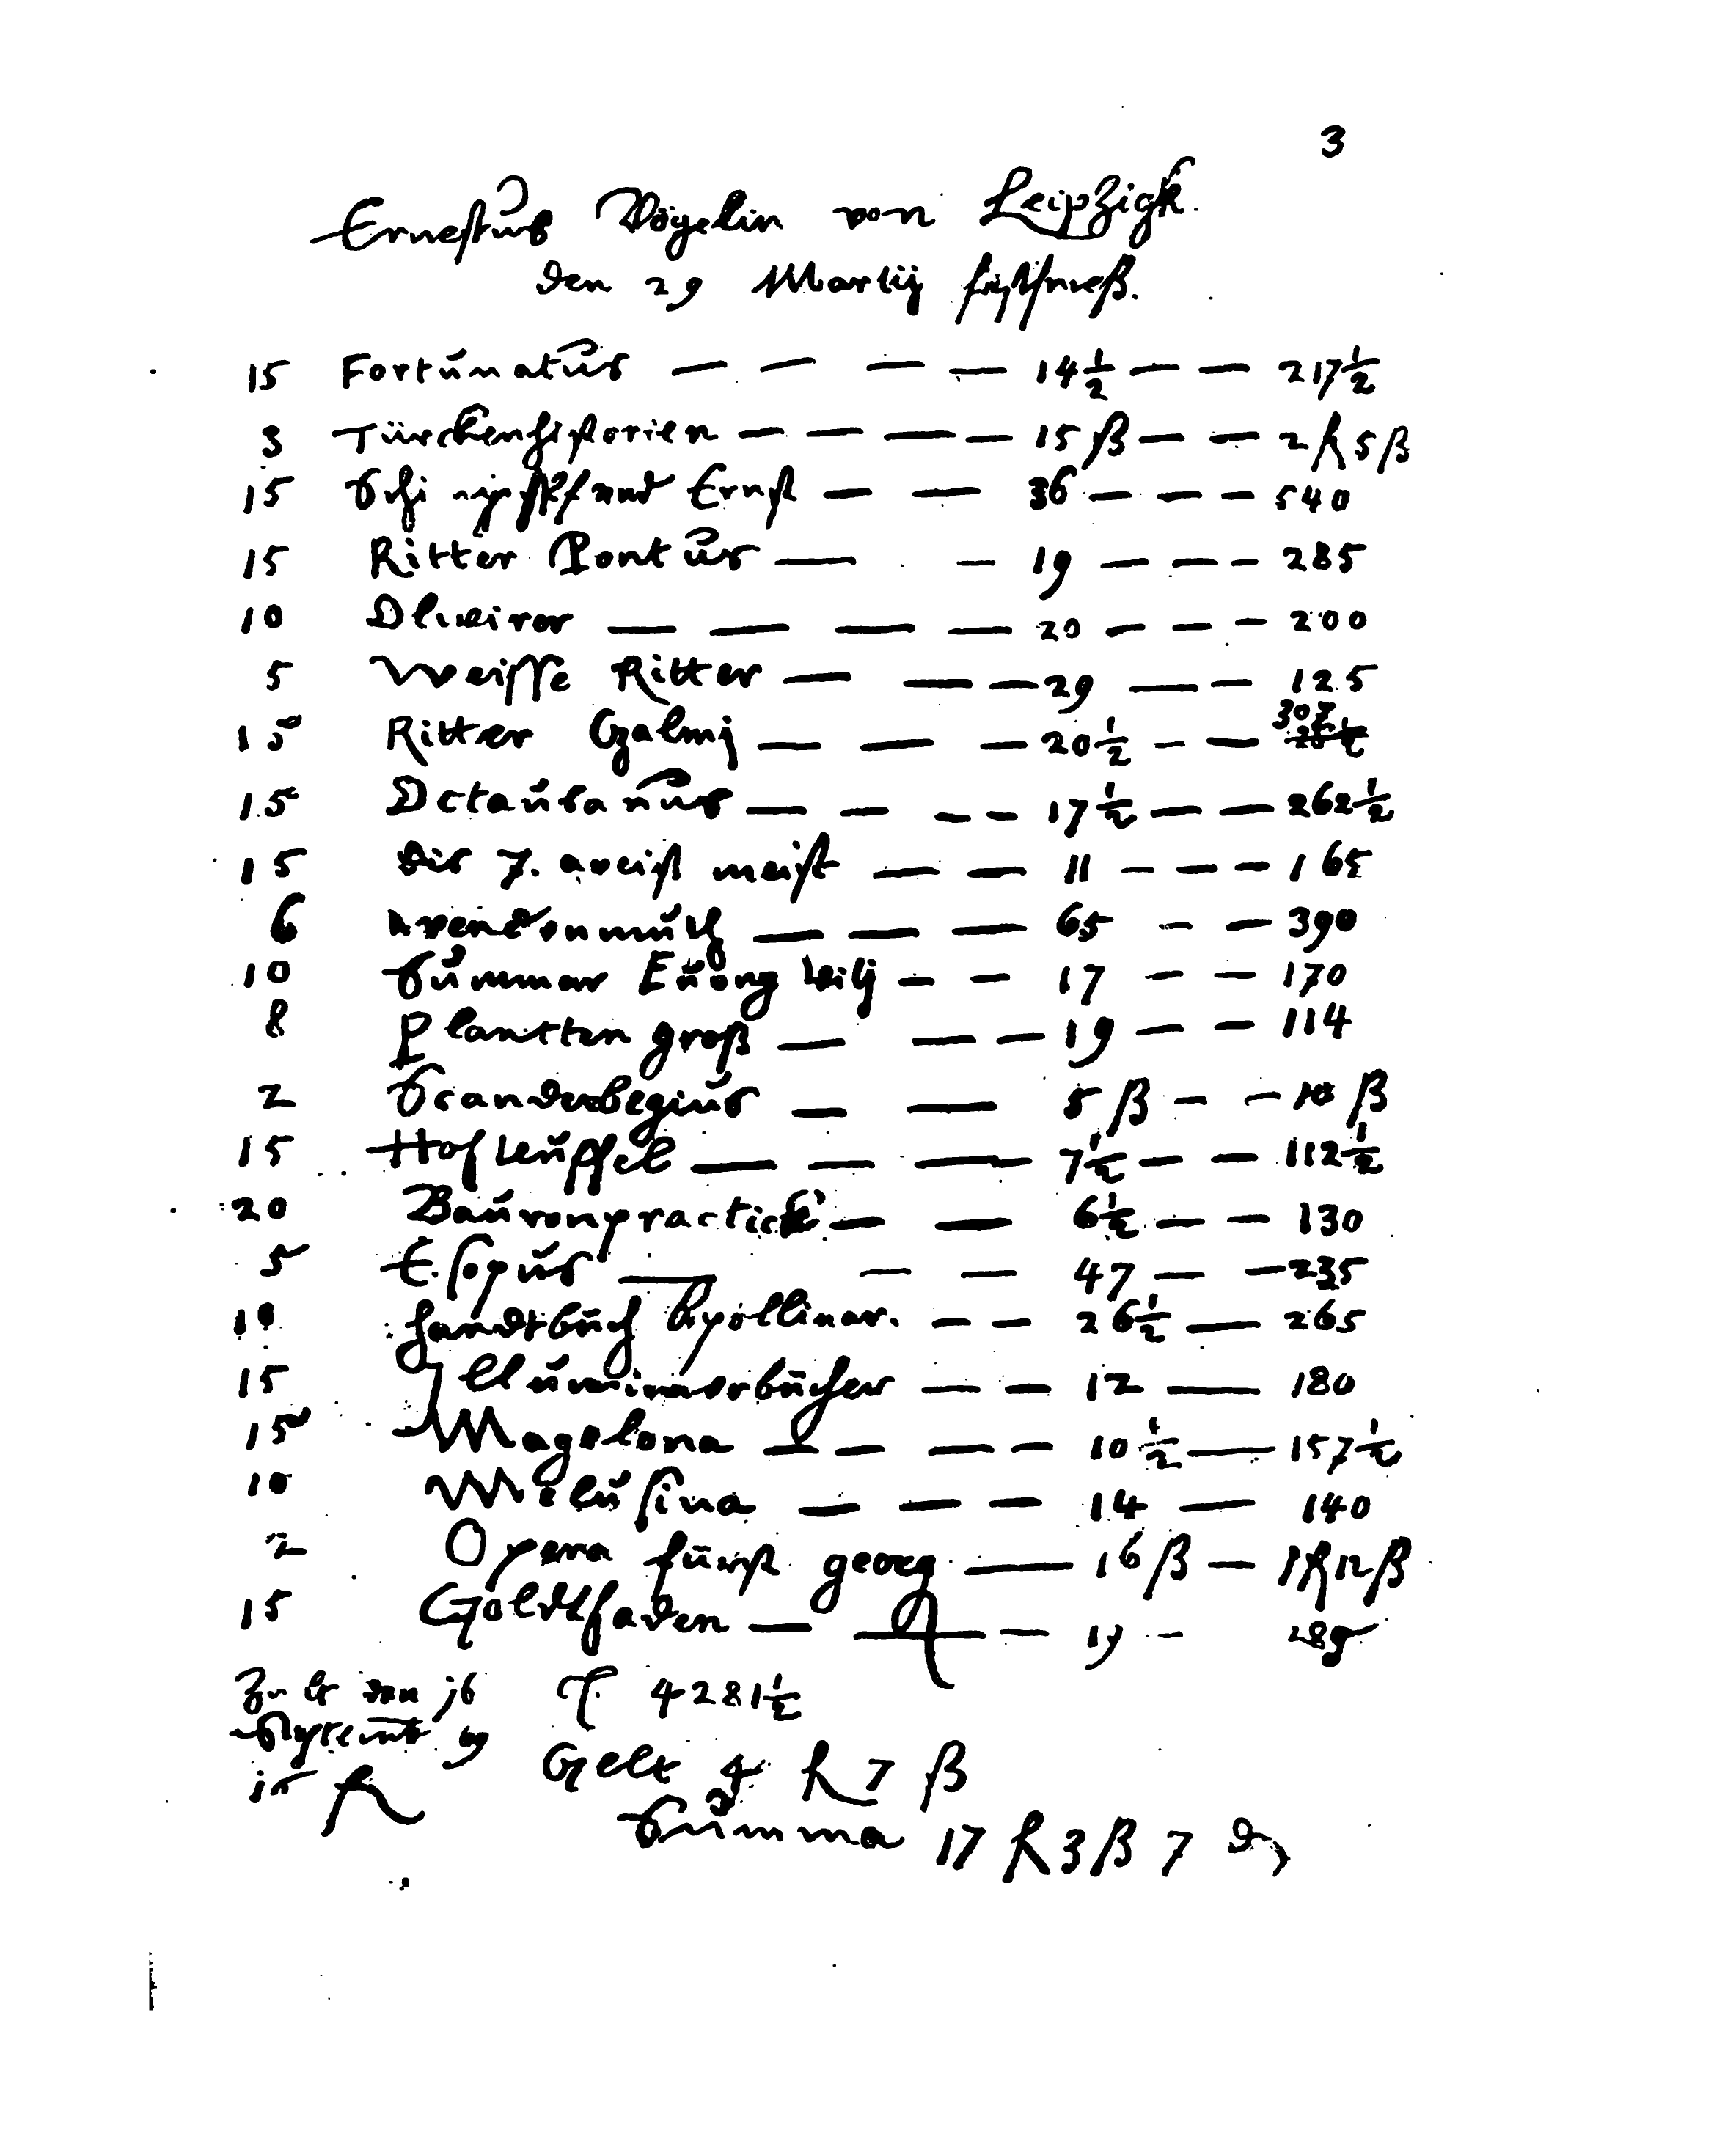 3
Ernestus Vögelin von Leipzigk
den 29 Martij
15 Fortunatus — — — — 14½ — — 217½
3 Türckenhistorien — — — — 15 ß — — 2 fl 5 ß
15 Schimpff vnd Ernst — — 36 — — — 540
15 Ritter Pontus — — 19 — — — 285
10 Oliuirer — — — — 20 — — — 200
5 Weisse Ritter — — — 29 — — 125
15 Ritter Galmj — — — 20½ — — 307
15 Octauianus — — — — 17½ — — 262½
15 Die 7. weiß meist — — 11 — — — 165
6 wendvnmuth — — — 65 — — 390
10 Summar Euangelij — — 17 — — 170
8 Planeten groß — — — 19 — — 114
2 Scanderbegius — — 5 ß — — 10 ß
15 Hofteuffel — — — 7½ — — 112½
20 Baurenpractick — — 6½ — — 130
5 Esopus — — — 47 — — 235
10 Handtbuch Apollinar. — — 26½ — 265
15 Illuminierbücher — — 12 — 180
15 Magelona — — — — 10½ — 157½
10 Melusina — — — 14 — 140
2 Opera fürst georg — 16 ß — 1 fl 12 ß
15 Goldtfaden — — — 19 — 285
Zalt den 16 4281½
Septemb 69 Gelt 4 fl 7 ß
15 fl
Summa 17 fl 3 ß 7 d